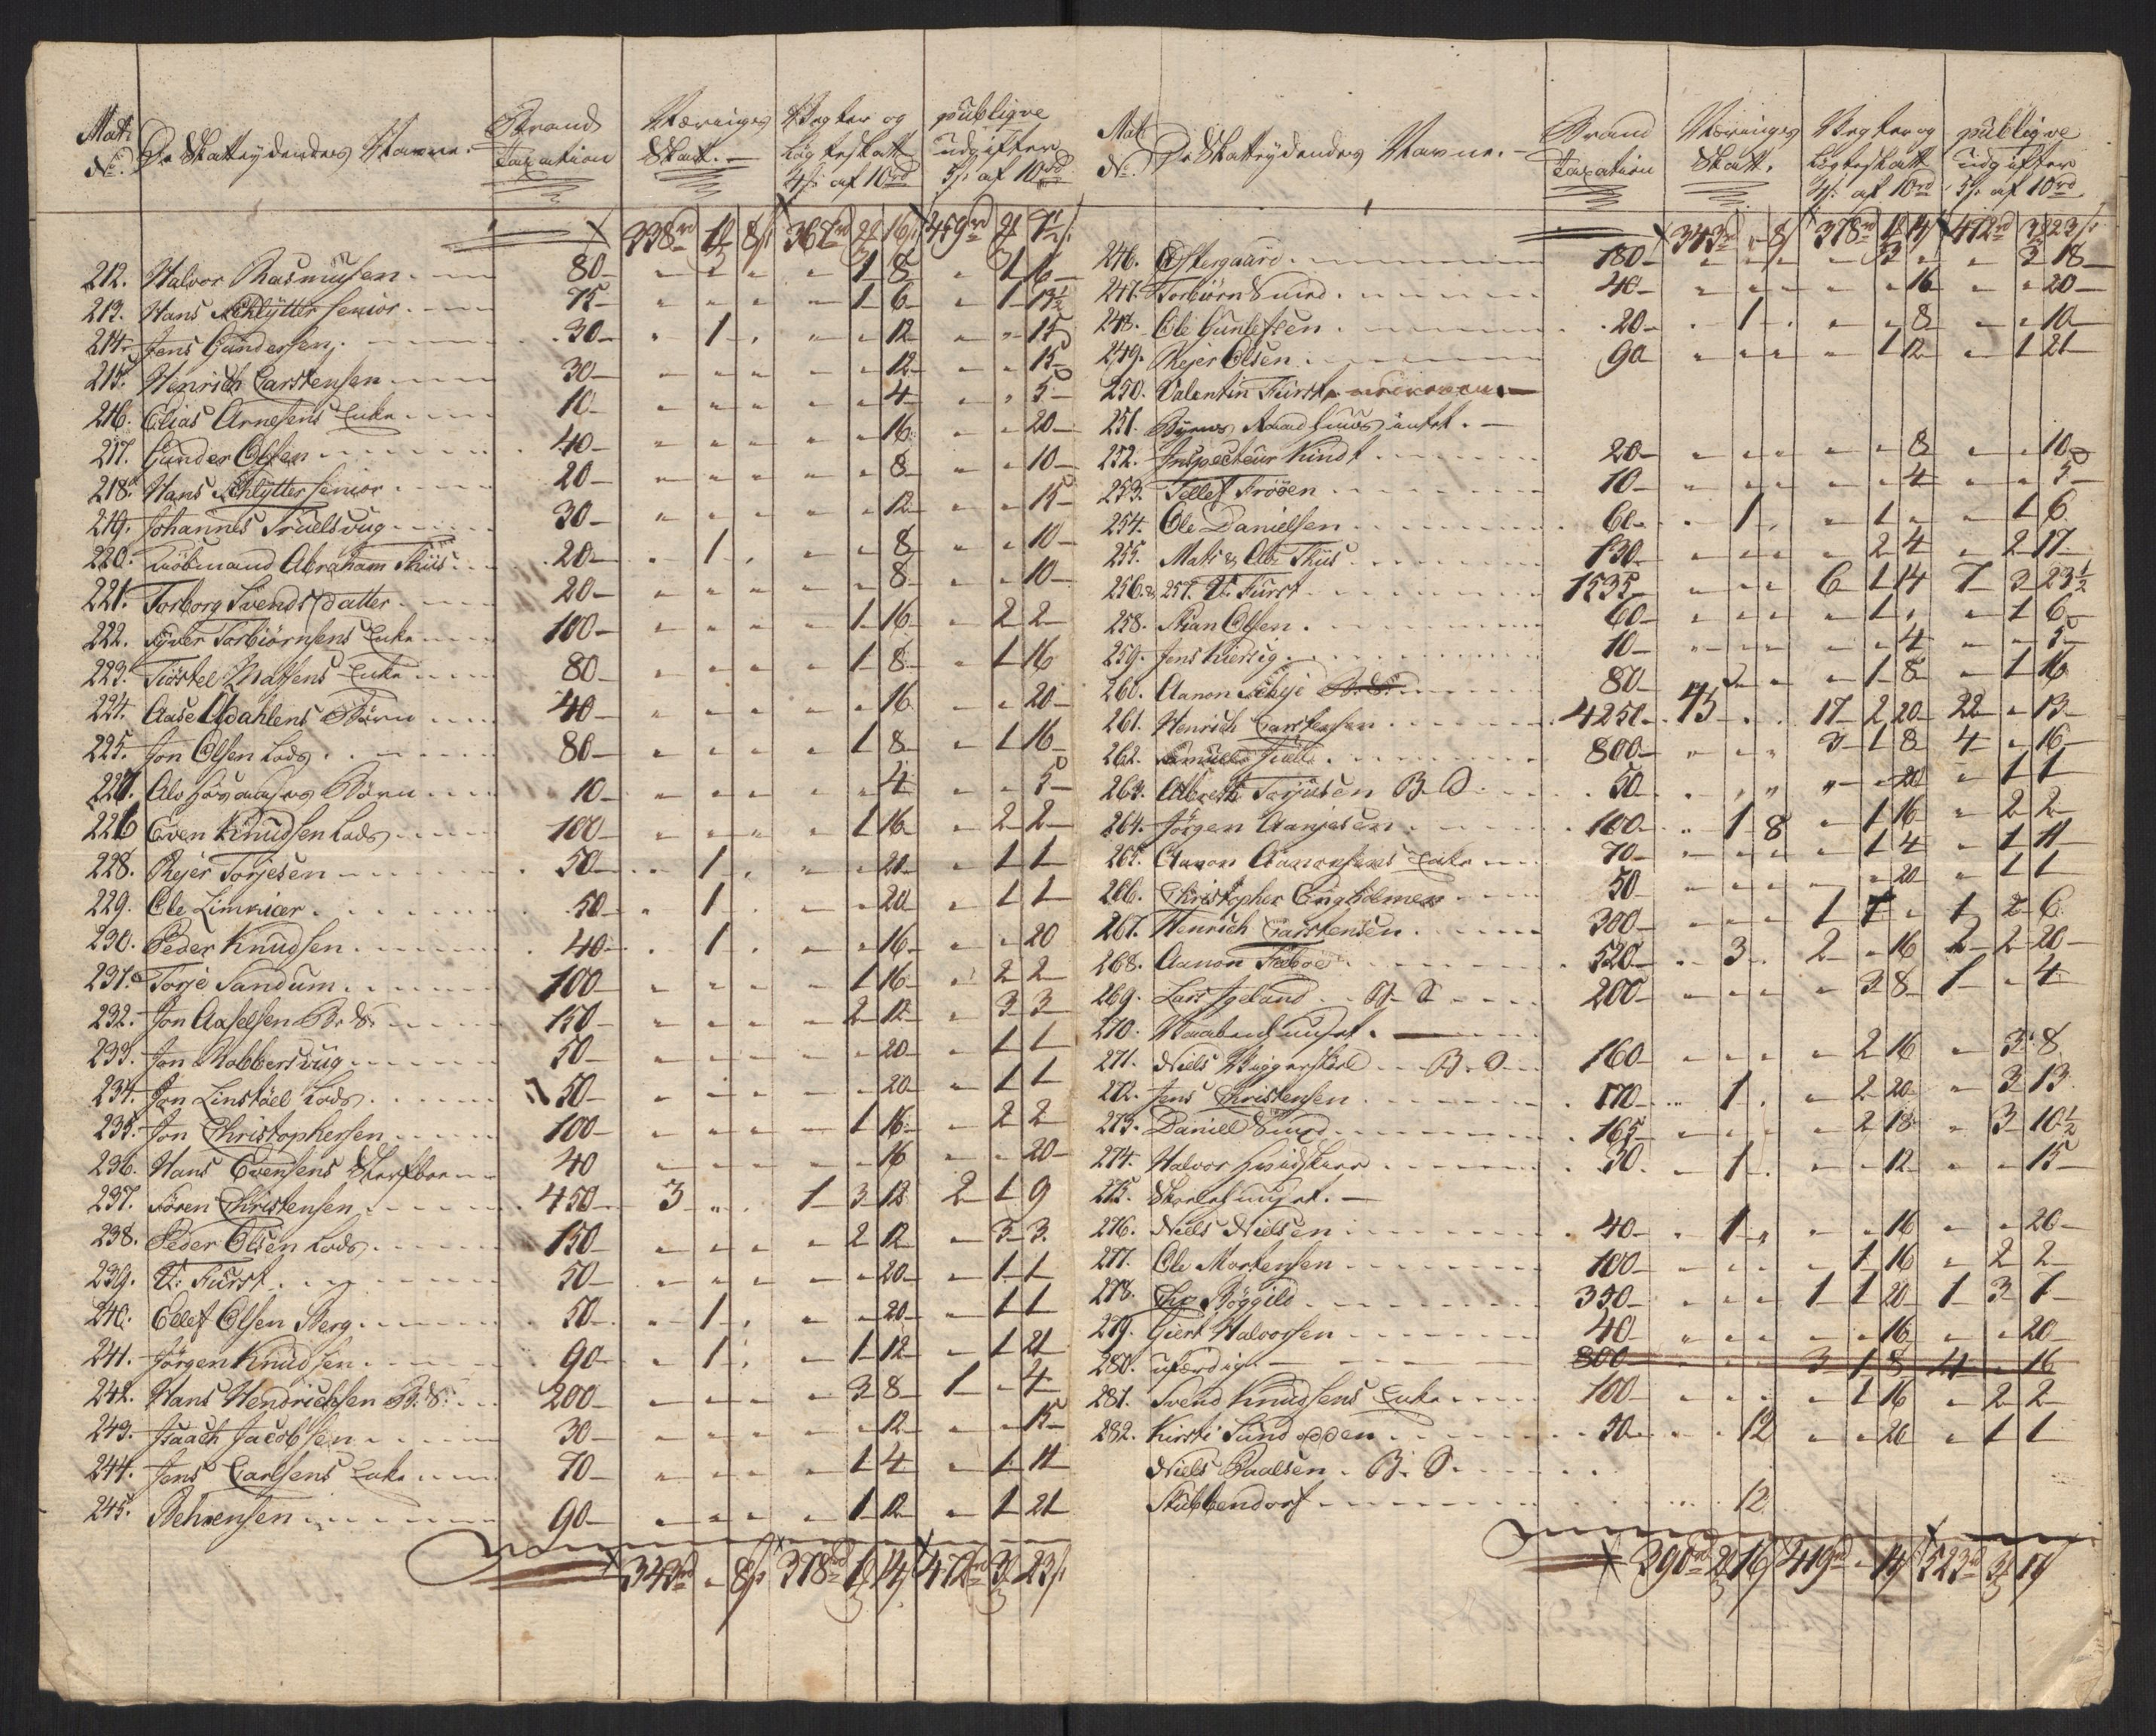 Mat: No. De Skatteydendes Navne. Brand Taxation Nærings Skatt. Vægter og Løgteskatt 4 s. af 10 rd publiqve udgifter 5 s. af 10 rd
338 rd 1 8 s. 367 rd 2 16 s. 459 rd 2 7½ s.
212. Halvor Rasmussen 80 - 2 - - 1 8 - 1 16
213. Hans Schlytter senior 75 - - - - 1 6 - 1 13½
214. Jens Gundersen 30 - 1 - - - 12 - - 15
215. Henrich Carstensen 30 - - - - - 12 - - 15
216. Elias Arnesens Enke 10 - - - - - 4 - - 5
217. Gunder Olsen 40 - - - - - 16 - - 20
218. Hans Schlytter senior 20 - - - - - 8 - - 10
219. Johannes Truelsvug 30 - - - - - 12 - - 15
220. Kiöbmand Abraham Thiis 20 - 1 - - - 8 - - 10
221. Torborg Svendsdatter 20 - - - - - 8 - - 10
222. Syver Torbiörnsens Enke 100 - - - - 1 16 - 2 2
223. Tiöstel Madsens Enke 80 - - - - 1 8 - 1 16
224. Aase Udahlens Börn 40 - - - - - 16 - - 20
225. Jon Olsen Lods 80 - - - - 1 8 - 1 16
227. Als Börn 10 - - - - - 4 - - 5
226 Even Knudsen Lods 100 - - - - 1 16 - 2 2
228. Rejer Torjesen 50 - 1 - - - 20 - 1 1
229. Ole Limkier 50 - 1 - - - 20 - 1 1
230. Peder Knudsen 40 - 1 - - - 16 - - 20
231. Torje Sandum 100 - - - - 1 16 - 2 2
232. Jon Axelsen B. S. 150 - - - - 2 12 - 3 3
233. Jon Robbersvug 50 - - - - - 20 - 1 1
234. Jon Linstöel Lods 50 - - - - - 20 - 1 1
235. Jon Christophersen 100 - - - - 1 16 - 2 2
236. Hans Evensens 40 - - - - - 16 - - 20
237. Sören Christensen 450 3 - - 1 3 12 2 1 9
238. Peder Olsen Lods 150 - - - - 2 12 - 3 3
239. V: Fürst 50 - - - - - 20 - 1 1
240. Ellef Olsen Berg 50 - 1 - - - 20 - 1 1
241. Jörgen Knudsen 90 - 1 - - 1 12 - 1 21
242. Hans Hendrichsen B. S. 200 - - - - 3 8 1 - 4
243. Isaach Jacobsen 30 - - - - - 12 - - 15
244. Jens Carlsens Enke 70 - - - - 1 4 - 1 11
245. Behrensen 90 - - - - 1 12 - 1 21
343 rd - 8 s. 378 rd 1 14 472 rd 3 23 s.
Mat No. De Skatteydendes Navne. Brand Taxation Nærings Skatt. Vægter og Løgteskatt 4 s. af 10 rd publiqve udgifter 5 s. af 10 rd
343 rd - 8 s 378 rd 1 14 472 rd 3 23 s.
246. Östergaard 180 - - - - 3 - - 3 18
247. Torbiörn Sund 40 - - - - - 16 - - 20
248. Ole Gunlefsen 20 - 1 - - - 8 - - 10
249. Rejer Olsen 90 - - - - 1 12 - 1 21
250. Valentin Fürst
251. Byens Raadhuus intet.
252. Inspecteur Kindt 20 - - - - - 8 - - 10
253. Tellef Fröyen 10 - - - - - 4 - - 5
254. Ole Danielsen 60 - 1 - - 1 - - 1 6
255. Mats & Ab: Thiis 130 - - - - 2 4 - 2 17
256. & 257. V. Fürst 1535 - - - 6 1 14 7 3 23½
258. Stian Olsen 60 - - - - 1 - - 1 6
259. Jens Kiersig 10 - - - - - 4 - - 5
260. Aanon 80 - 2 - - 1 8 - 1 16
261. Henrich Carstensen 4250 45 - - 17 2 20 22 - 13
262. 800 - - - 3 1 8 4 - 16
263. Albreth Torjusen B. S. 50 - - - - - 20 - 1 1
264. Jörgen Aanjesen 100 - 1 8 - 1 16 - 2 2
265. Aanon Aanonsens Enke 70 - - - - 1 4 - 1 11
266. Christopher 50 - - - - - 20 - 1 1
267. Henrich Carstensen 300 - - - 1 1 - 1 2 6
268. Aanon 520 - 3 - 2 - 16 2 2 20
269. Lars Igeland B. S. 200 - - - - 3 8 1 - 4
270. Waabenhuuset.
271. Niels B. S. 160 - - - - 2 16 - 3 8
272. Jens Christensen 170 - 1 - - 2 20 - 3 13
273. Daniel Sund 165 - - - - 2 18 - 3 10½
274. Halvor 30 - 1 - - - 12 - - 15
275. Skolehuuset.
276. Niels Nielsen 40 - 1 - - - 16 - - 20
277. Ole Mortensen 100 - - - - 1 16 - 2 2
278. Chr Böggild 350 - - - 1 1 20 1 3 7
279. Giert Halvorsen 40 - - - - - 16 - - 20
280. ufærdig. 800 - - - 3 1 8 4 - 16
281. Svend Knudsens Enke 100 - - - - 1 16 - 2 2
282. Kirsti Sundodden 50 - - 12 - - 20 - 1 1
Niels Paalsen. B. S.
Stubbendorf 12
390 rd 2 16 419 rd - 14 523 rd 3 17